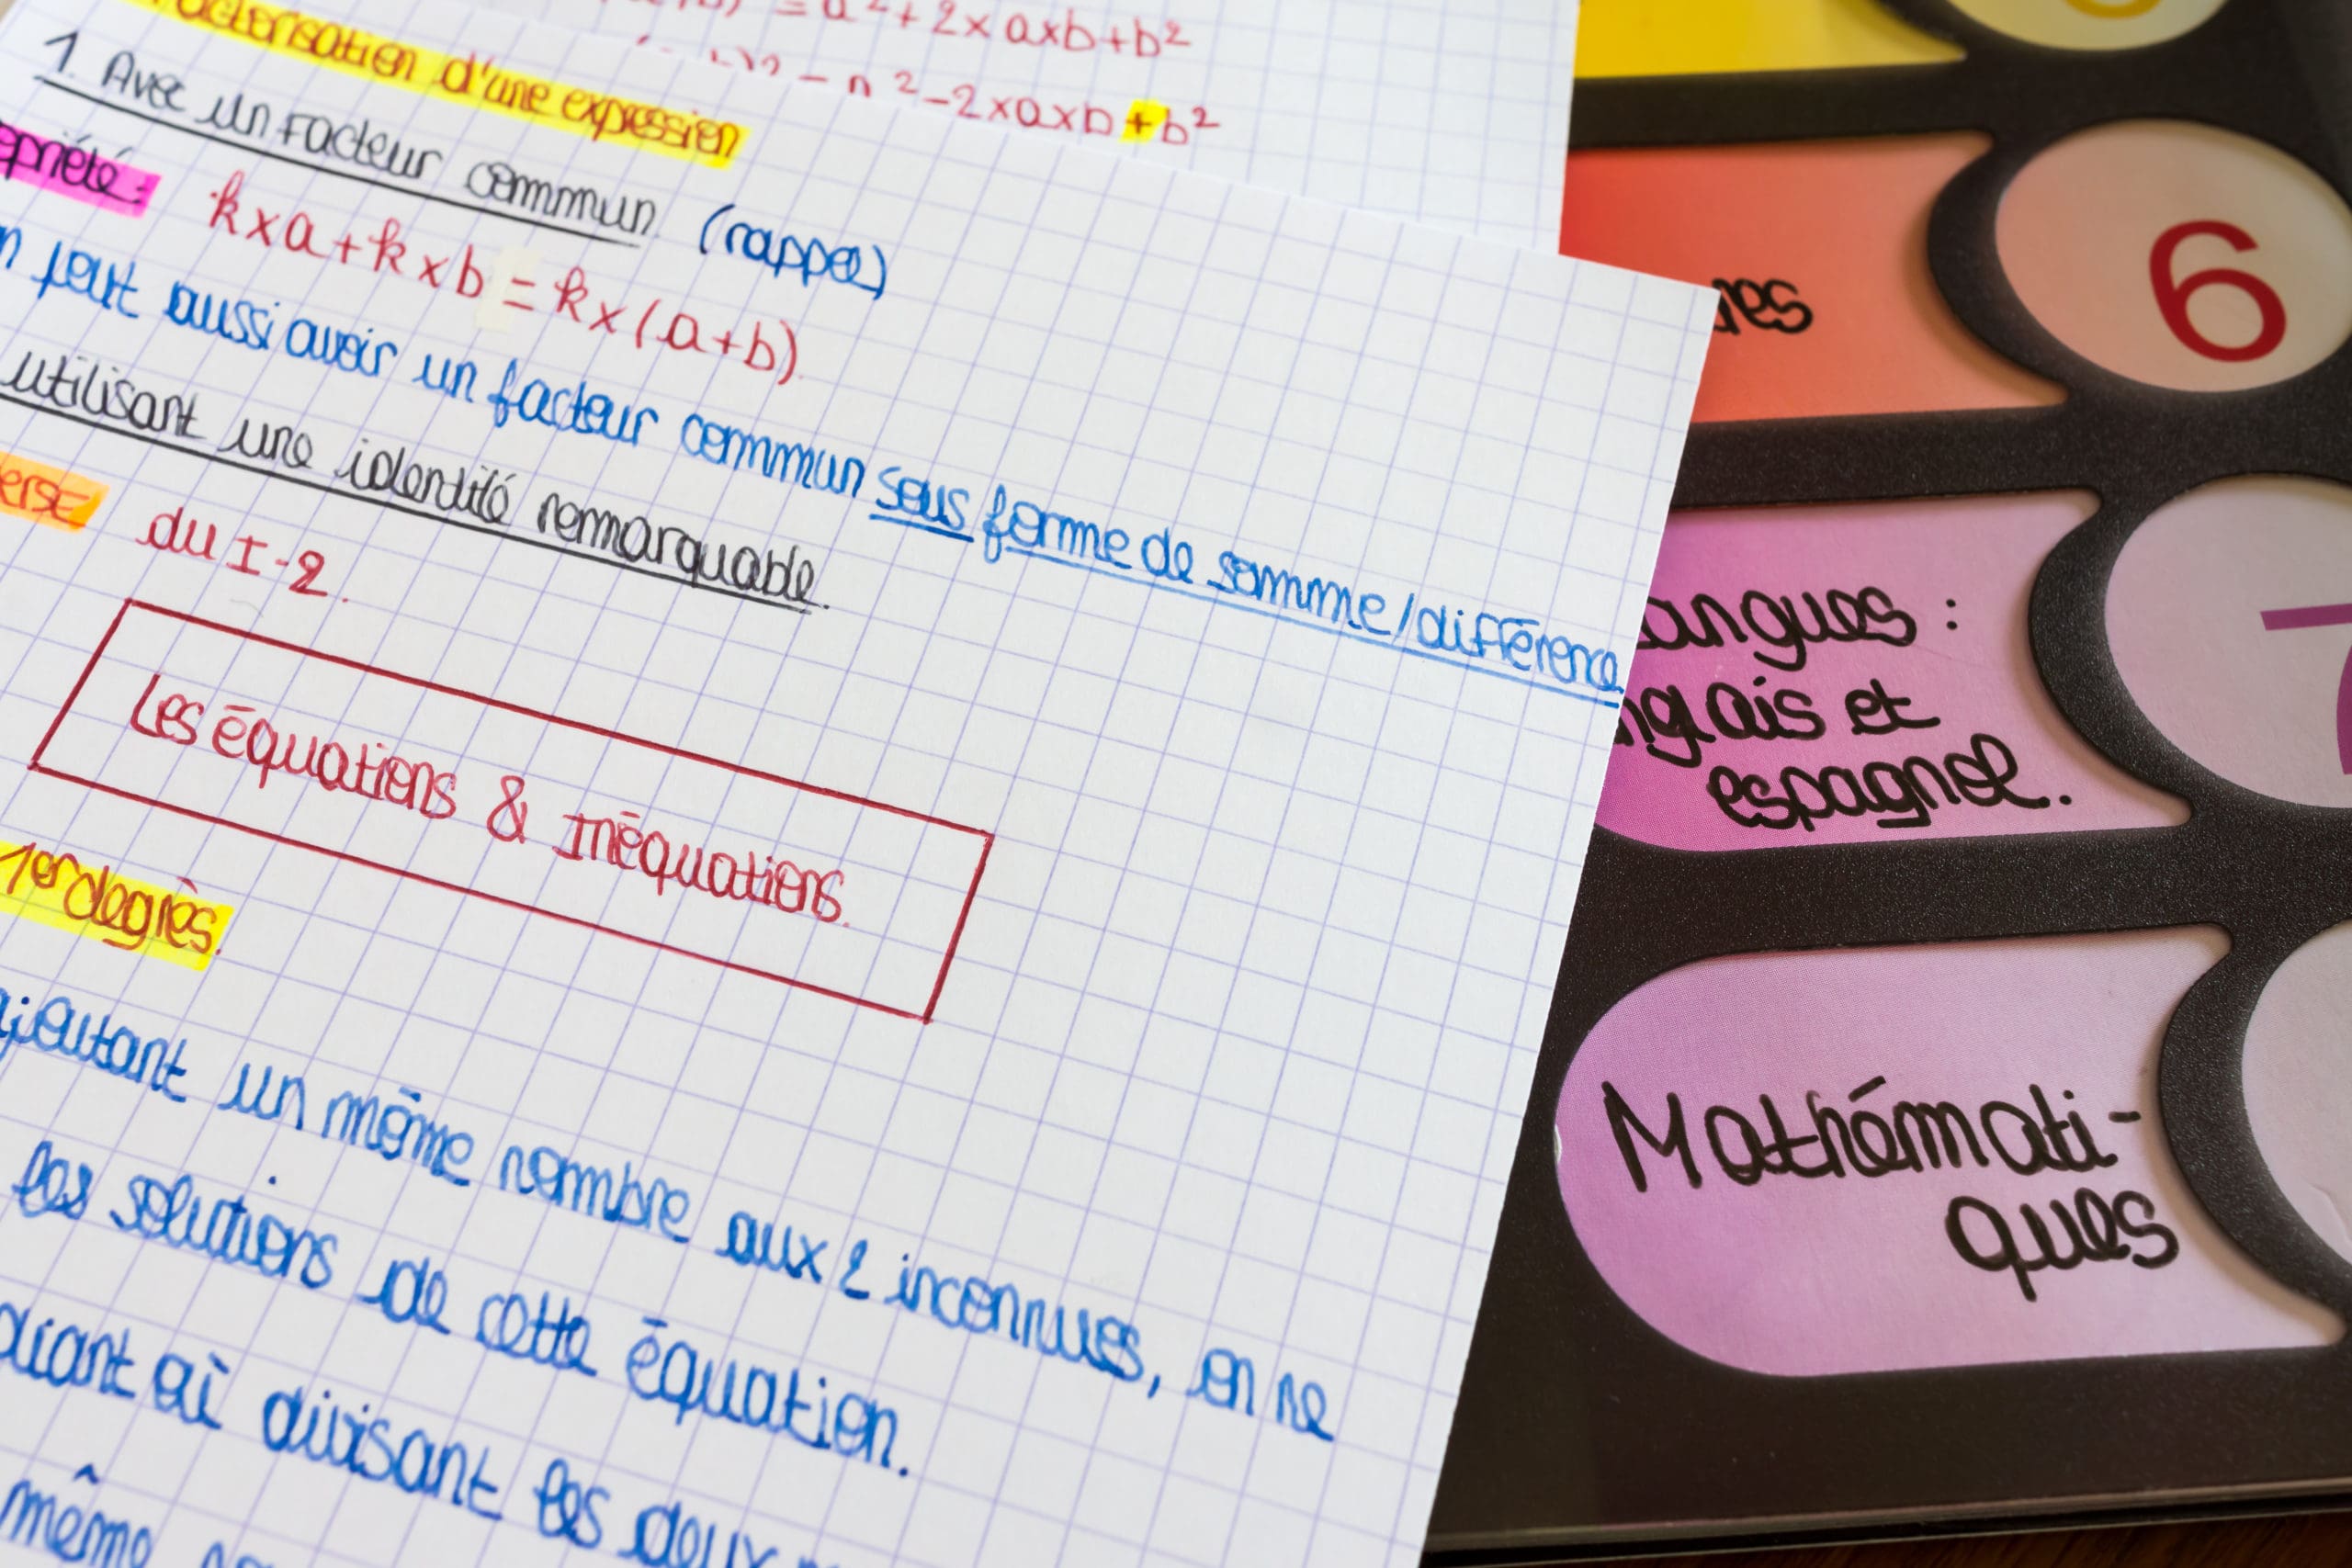 = a²+2×a×b+b²
²-2×a×b+b²
Factorisation d'une expression
1. Avec un facteur commun (rappel)
k×a+k×b = k×(a+b).
peut aussi avoir un facteur commun sous forme de somme/différence.
utilisant une identité remarquable.
du I-2.
Les équations & Inéquations.
1er degrès.
un même nombre aux 2 inconnues, on ne
les solutions de cette équation.
divisant les deux
même
6
angues :
nglais et
espagnol.
7
Mathémati-
ques